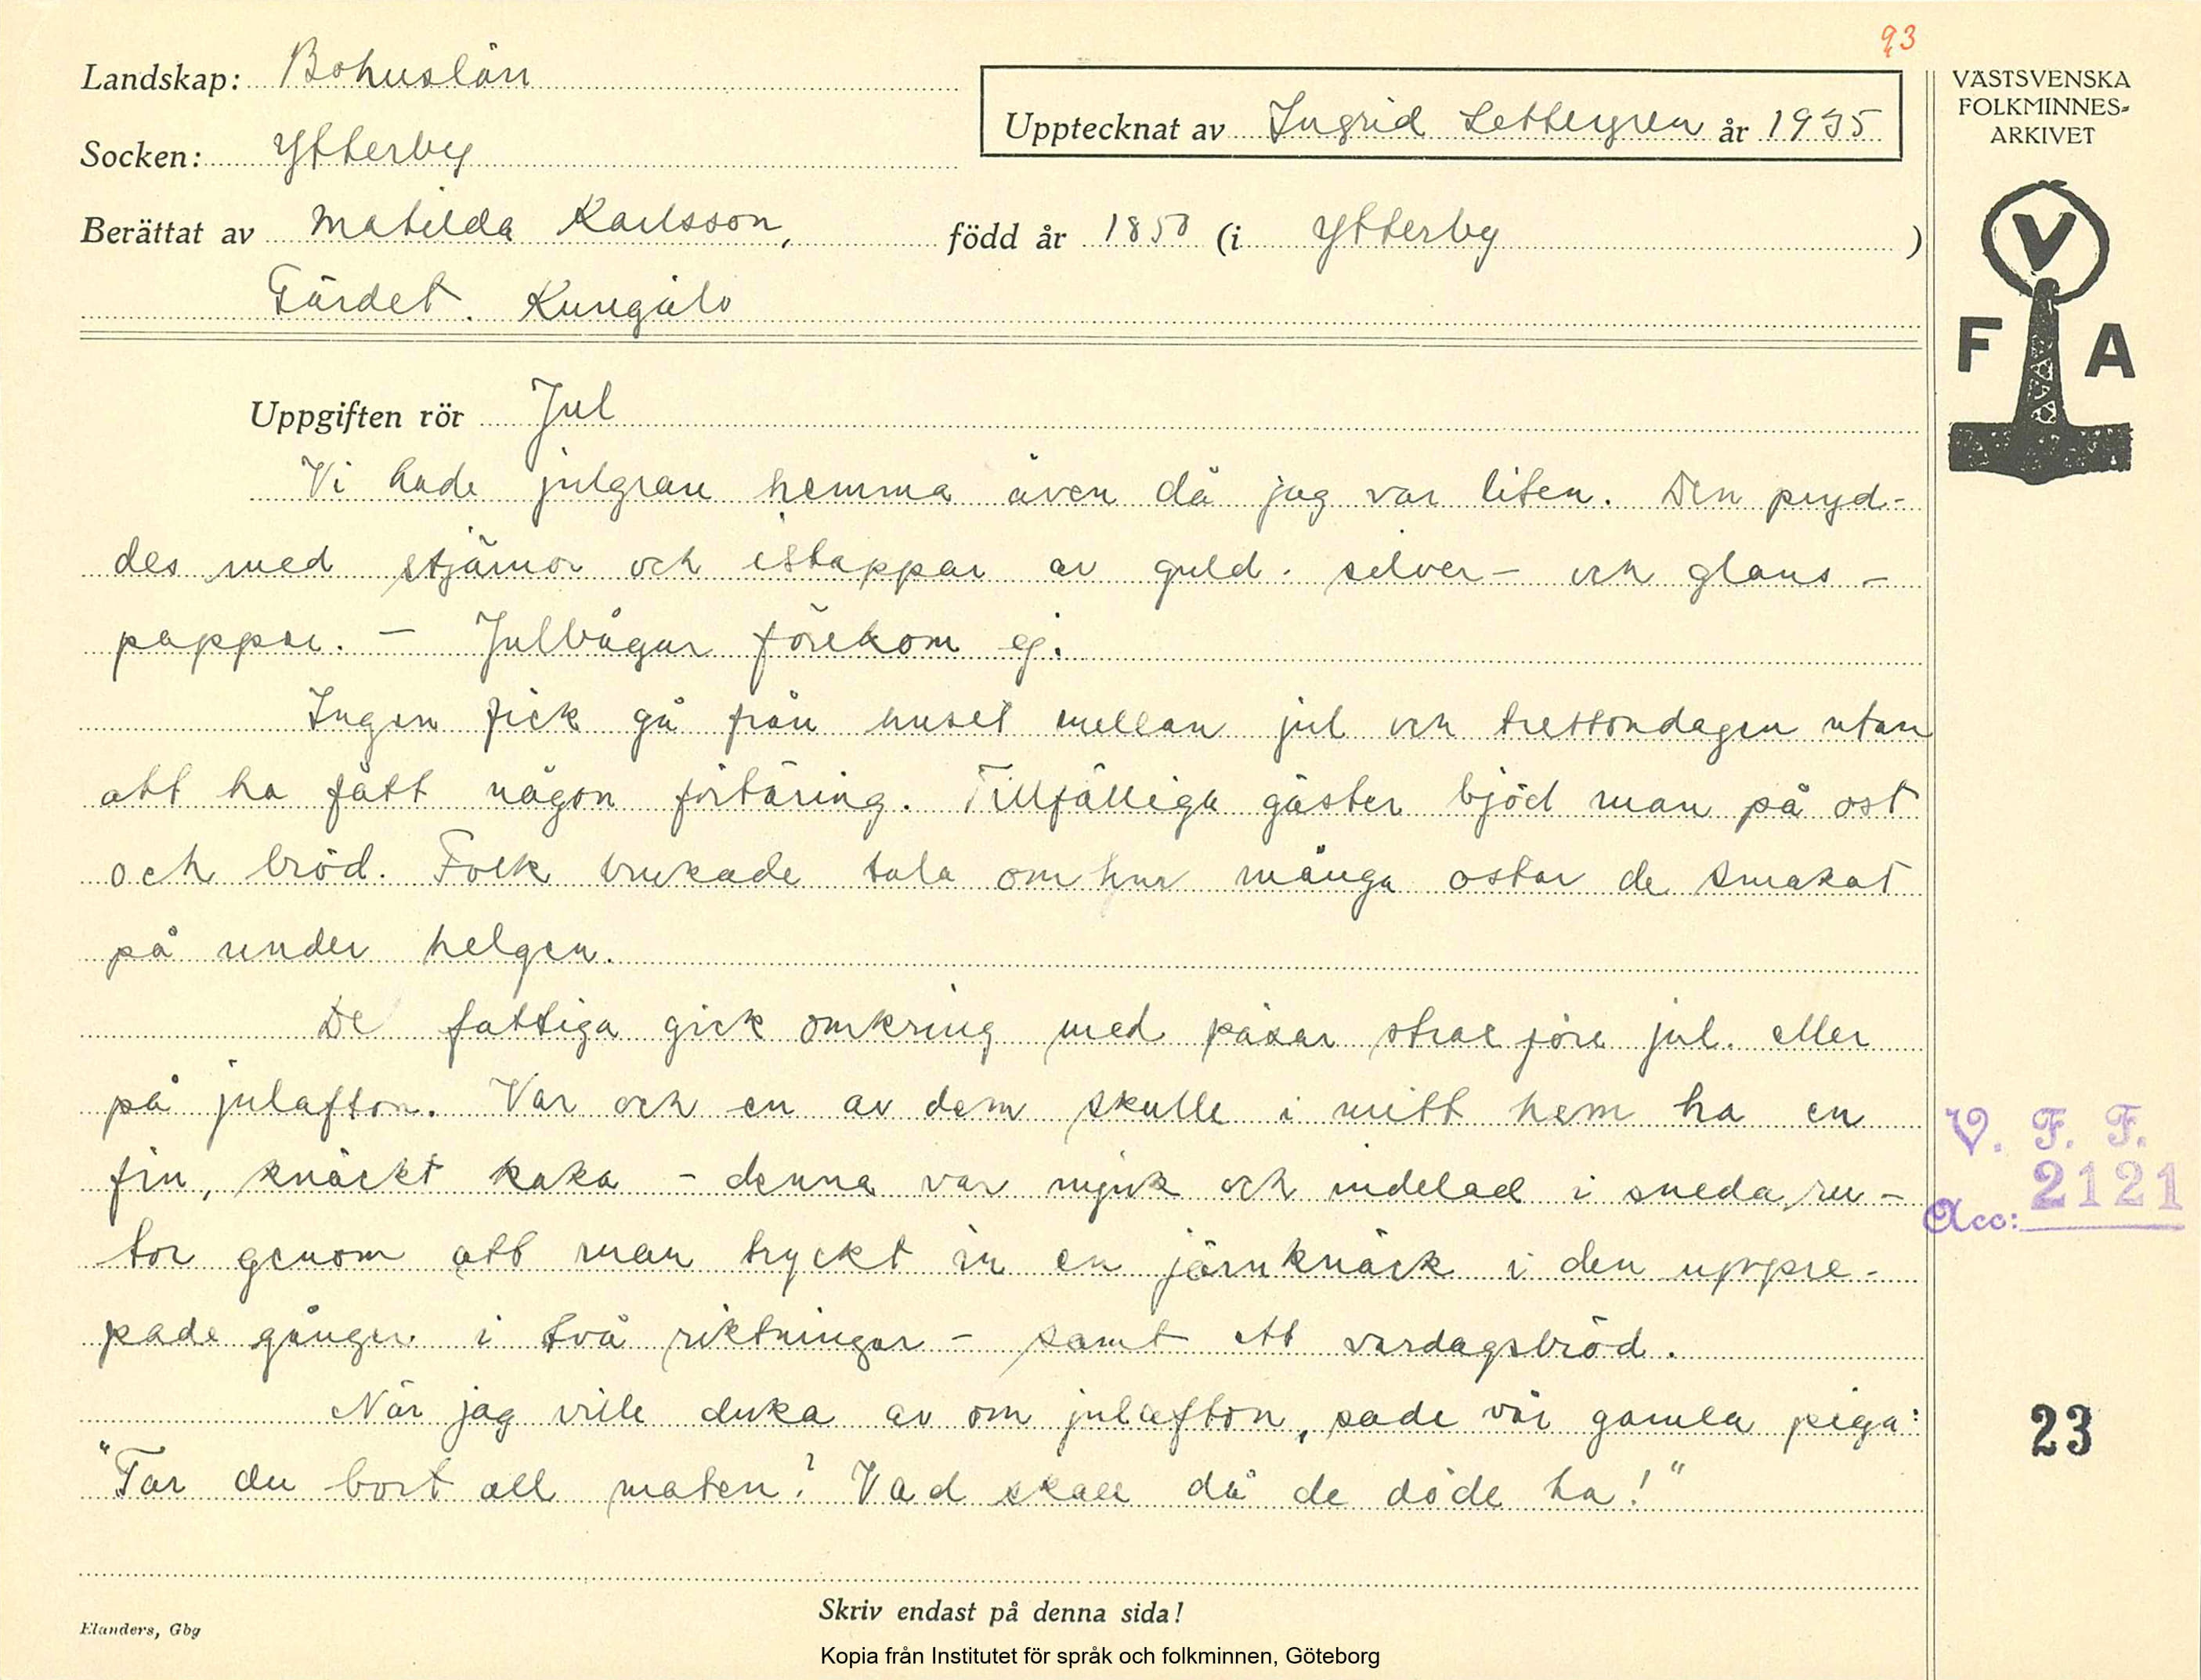 93
Landskap: Bohuslän
Upptecknat av Ingrid Lettegren år 1935
Socken: Ytterby
Berättat av Matilda Karlsson, född år 1850 (i Ytterby)
Gärdet. Kungälv
VÄSTSVENSKA
FOLKMINNES-
ARKIVET
V
F A
Uppgiften rör Jul
Vi hade julgran hemma även då jag var liten. Den pryd-
des med stjärnor och istappar av guld- silver- och glans-
papper. – Julbågar förekom ej.
Ingen fick gå från huset mellan jul och trettondagen utan
att ha fått någon förtäring. Tillfälliga gäster bjöd man på ost
och bröd. Folk brukade tala om hur många ostar de smakat
på under helgen.
De fattiga gick omkring med påsar strax före jul. eller
på julafton. Var och en av dem skulle i mitt hem ha en
fin, knäckt kaka – denna var mjuk och indelad i sneda ru-
tor genom att man tryckt in en järnknäck i den upppre-
pade gånger i två riktningar – samt ett vardagsbröd.
När jag ville duka av om julafton, sade vår gamla piga:
"Tar du bort all maten? Vad skall då de döde ha!"
V. F. F.
Acc: 2121
23
Skriv endast på denna sida!
Elanders, Gbg
Kopia från Institutet för språk och folkminnen, Göteborg